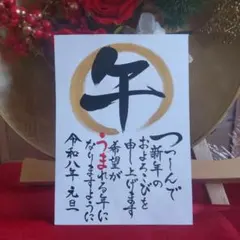 午
つつしんで
新年の
およろこびを
申し上げます
希望が
うまれる年に
なりますように
令和八年 元旦